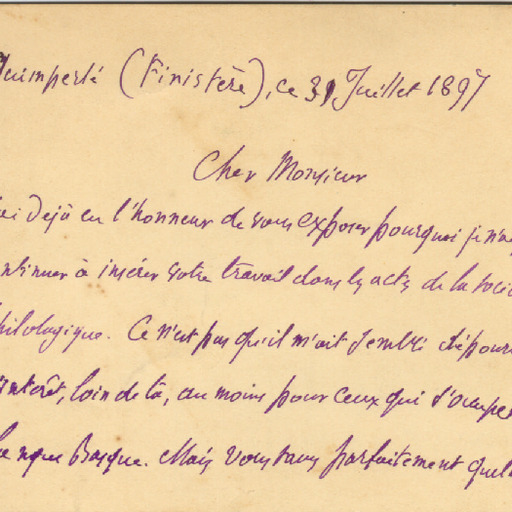 Quimperlé (Finistère), ce 31 Juillet 1897
Cher Monsieur
ai Déjà eu l'honneur de vous exposer pourquoi je n'a
ntinuer à insérer votre travail dans les actes de la Socié
hilologique. Ce n'est pas qu'il m'ait semblé dépour
intérêt, loin de là, au moins pour ceux qui s'occupe
langue Basque. Mais vous savez parfaitement que l